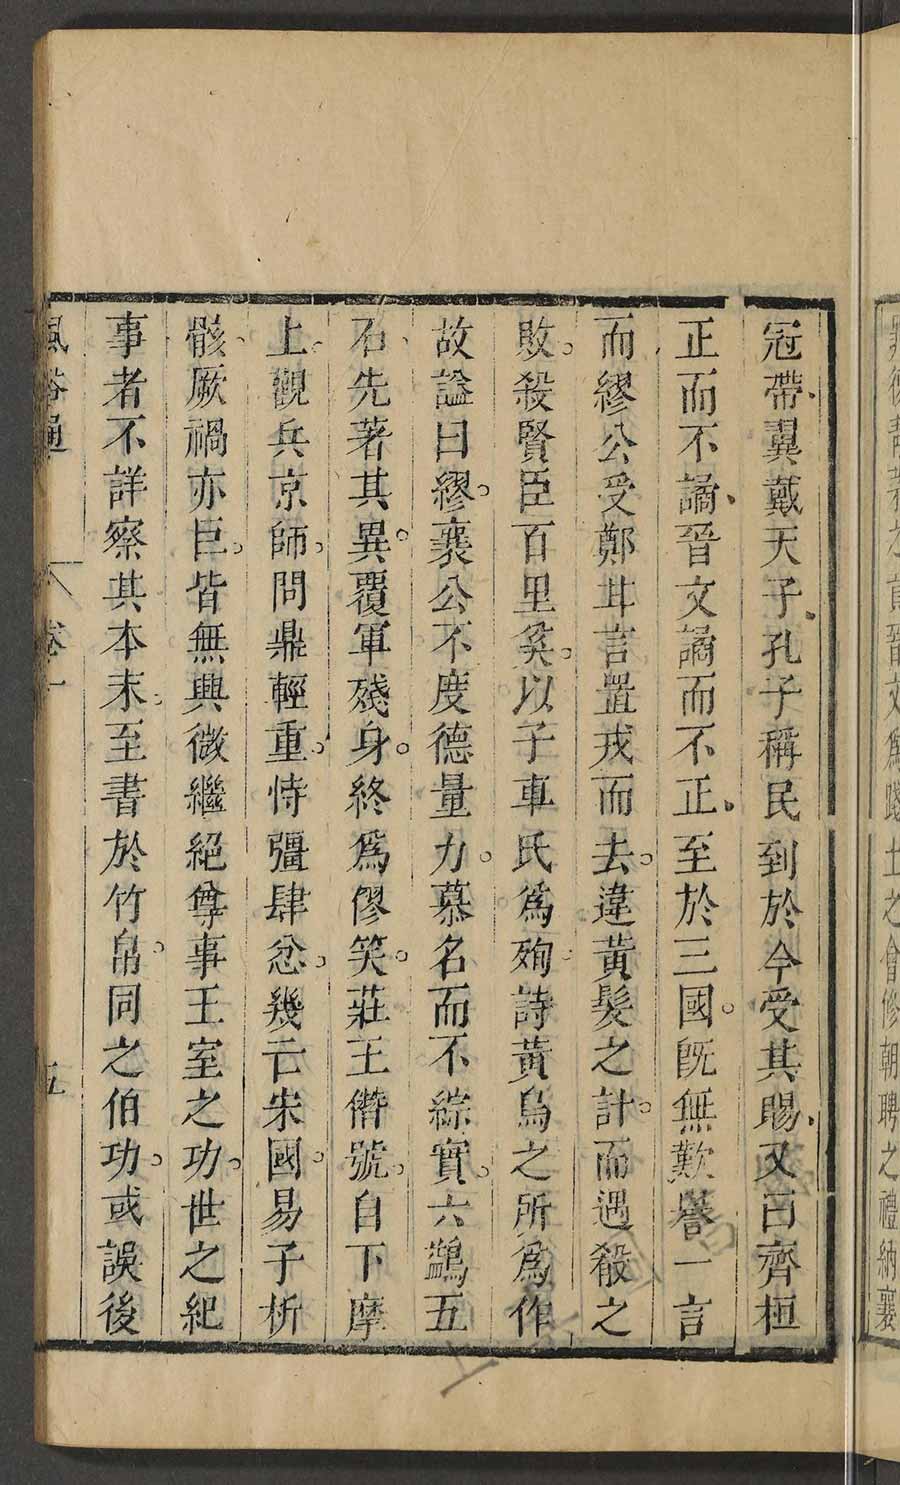 冠帶翼戴天子孔子稱民到於今受其賜又曰齊桓
正而不譎晉文譎而不正至於三國旣無歎譽一言
而繆公受鄭甘言置戎而去違黃髮之計而遇殽之
敗殺賢臣百里奚以子車氏爲殉詩黃鳥之所爲作
故謚曰繆襄公不度德量力慕名而不綜實六鷁五
石先著其異覆軍殘身終爲僇笑莊王僭號自下摩
上觀兵京師問鼎輕重恃彊肆忿幾亡宋國易子析
骸厥禍亦巨皆無興微繼絕尊事王室之功世之紀
事者不詳察其本末至書於竹帛同之伯功或誤後
風俗通 卷一 五